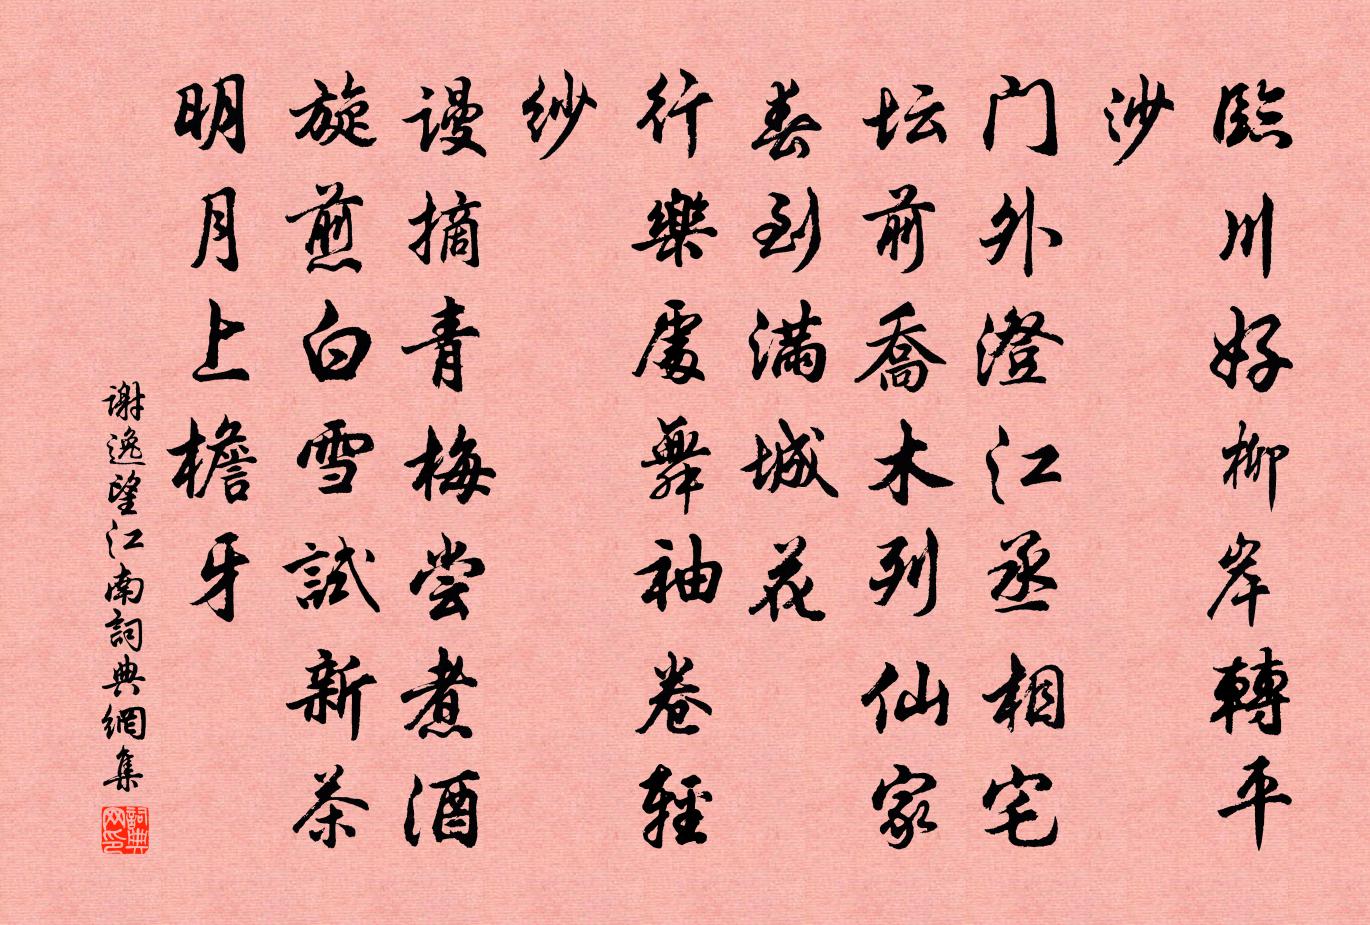 臨川好柳岸轉平
沙
门外澄江丞相宅
坛前喬木列仙家
春到满城花
行樂處舞袖卷輕
纱
谩摘青梅尝煮酒
旋煎白雪試新茶
明月上檐牙
谢逸望江南詞典網集
詞典网印